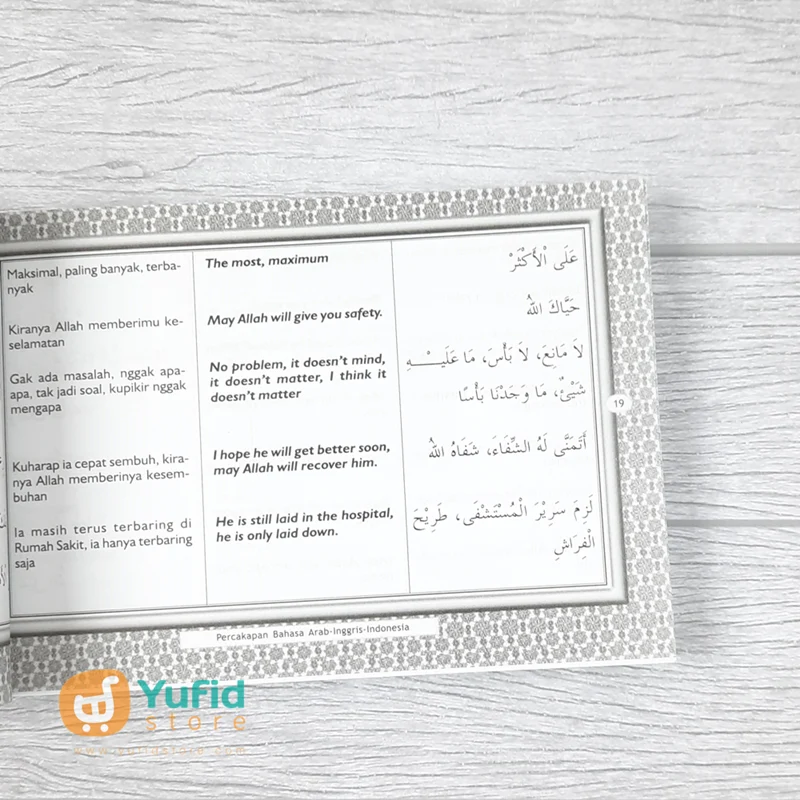 Maksimal, paling banyak, terba-
nyak
The most, maximum
عَلَى اْلأَكْثَرْ
Kiranya Allah memberimu ke-
selamatan
May Allah will give you safety.
حَيَّاكَ اللهُ
Gak ada masalah, nggak apa-
apa, tak jadi soal, kupikir nggak
mengapa
No problem, it doesn't mind,
it doesn't matter, I think it
doesn't matter
لاَ مَانِعَ، لاَ بَأْسَ، مَا عَلَيْـــهِ
شَيْئٌ، مَا وَجَدْنَا بَأْسًا
Kuharap ia cepat sembuh, kira-
nya Allah memberinya kesem-
buhan
I hope he will get better soon,
may Allah will recover him.
أَتَمَنَّى لَهُ الشِّفَاءَ، شَفَاهُ اللهُ
Ia masih terus terbaring di
Rumah Sakit, ia hanya terbaring
saja
He is still laid in the hospital,
he is only laid down.
لَزِمَ سَرِيْرَ الْمُسْتَشْفَى، طَرِيْحَ
الْفِرَاشِ
19
Percakapan Bahasa Arab-Inggris-Indonesia
Yufid
store
www.yufidstore.com